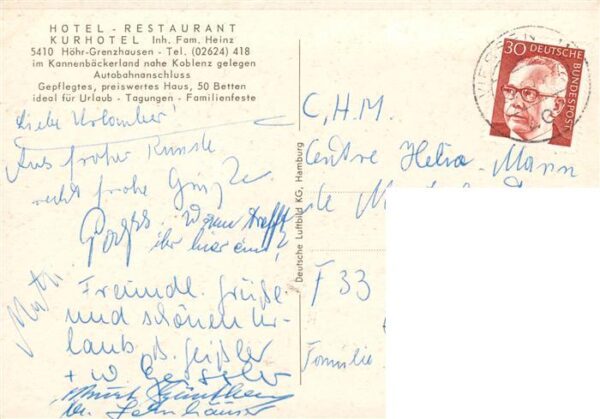 HOTEL - RESTAURANT
KURHOTEL Inh. Fam. Heinz
5410 Höhr-Grenzhausen - Tel. (02624) 418
im Kannenbäckerland nahe Koblenz gelegen
Autobahnanschluss
Gepflegtes, preiswertes Haus, 50 Betten
ideal für Urlaub - Tagungen - Familienfeste
Liebe Urlauber!
Aus froher Runde
recht frohe Grüße
wann trefft
ihr hier ein?
Freundl. Grüße
und schönen Ur-
laub. B. Geißler
+ W Geissler
Deutsche Luftbild KG, Hamburg
30 DEUTSCHE BUNDESPOST
C.H.M.
Centre Helio-Marin
de
F 33
Familie